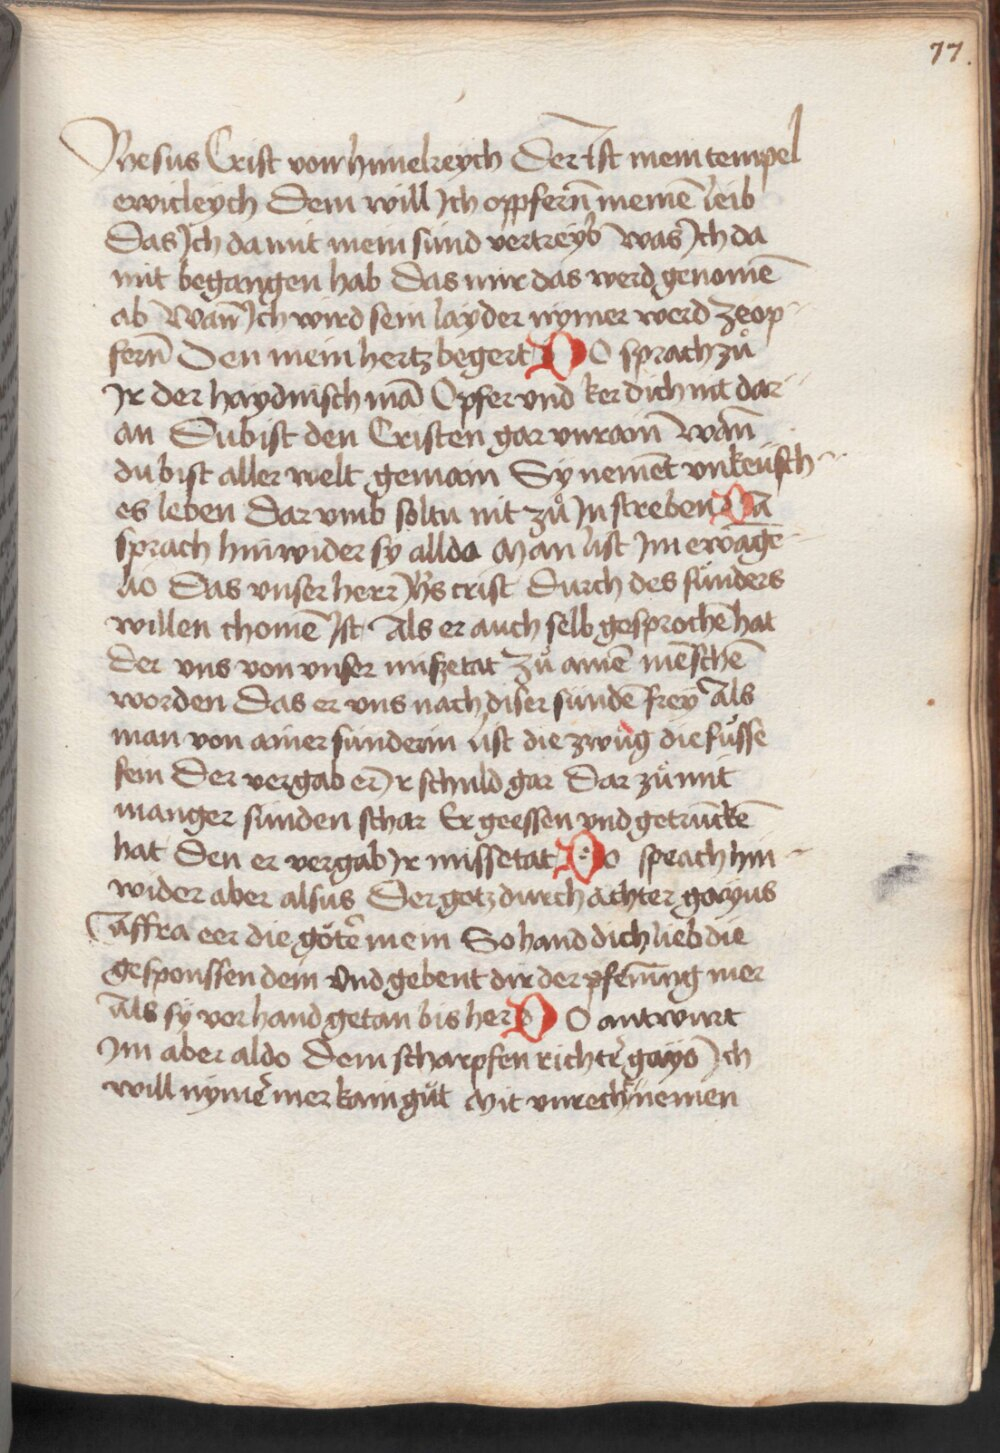 77.
Jhesus Crist von himelreych Der ist mein tempel
ewicleych Dem will Ich opfern̄ meinē leib
Das Ich damit mein sünd vertreyb was Ich da
mit begangen hab Das mir das werd genomē
ab Wan̄ Ich wird sein layder nymer werd ze op-
fern̄ Den mein hertz begert DO sprach zů
Ir der haydnisch mā Opfer vnd ker dich nit dar
an Du bist den Cristen gar vnrain̄ Wan̄
du bist aller welt gemain Sy nemēt vnkeüsch-
es leben Dar vmb soltu nit zů In streben Da
sprach hinwider sy allda Man list Im ewāge-
lio Das vnser herr Jhs crist Durch des sünders
willen chomē Ist Als er auch selb gesprochē hat
Der vns von vnser missetat Zů ainē mēschē
worden Das er vns nach diser sündē frey Als
man von ainer sünderin list die zwůg die fůsse
sein Der vergab er Ir schuld gar Dar zů mit
manger sünden schar Er geessen vnd getrūckē
hat Den er vergab Ir missetat Do sprach hin-
wider aber alsus Der gotz durchächter gayus
Affra eer die götter mein So hand dich lieb die
gesponssen dein Vnd gebent dir der pfenning mer
Als sy vor hand getan bis her DO antwurt
Im aber aldo Dem scharpfen richter gayo Ich
will nymer mer kain gůt Mit vnrecht nemen